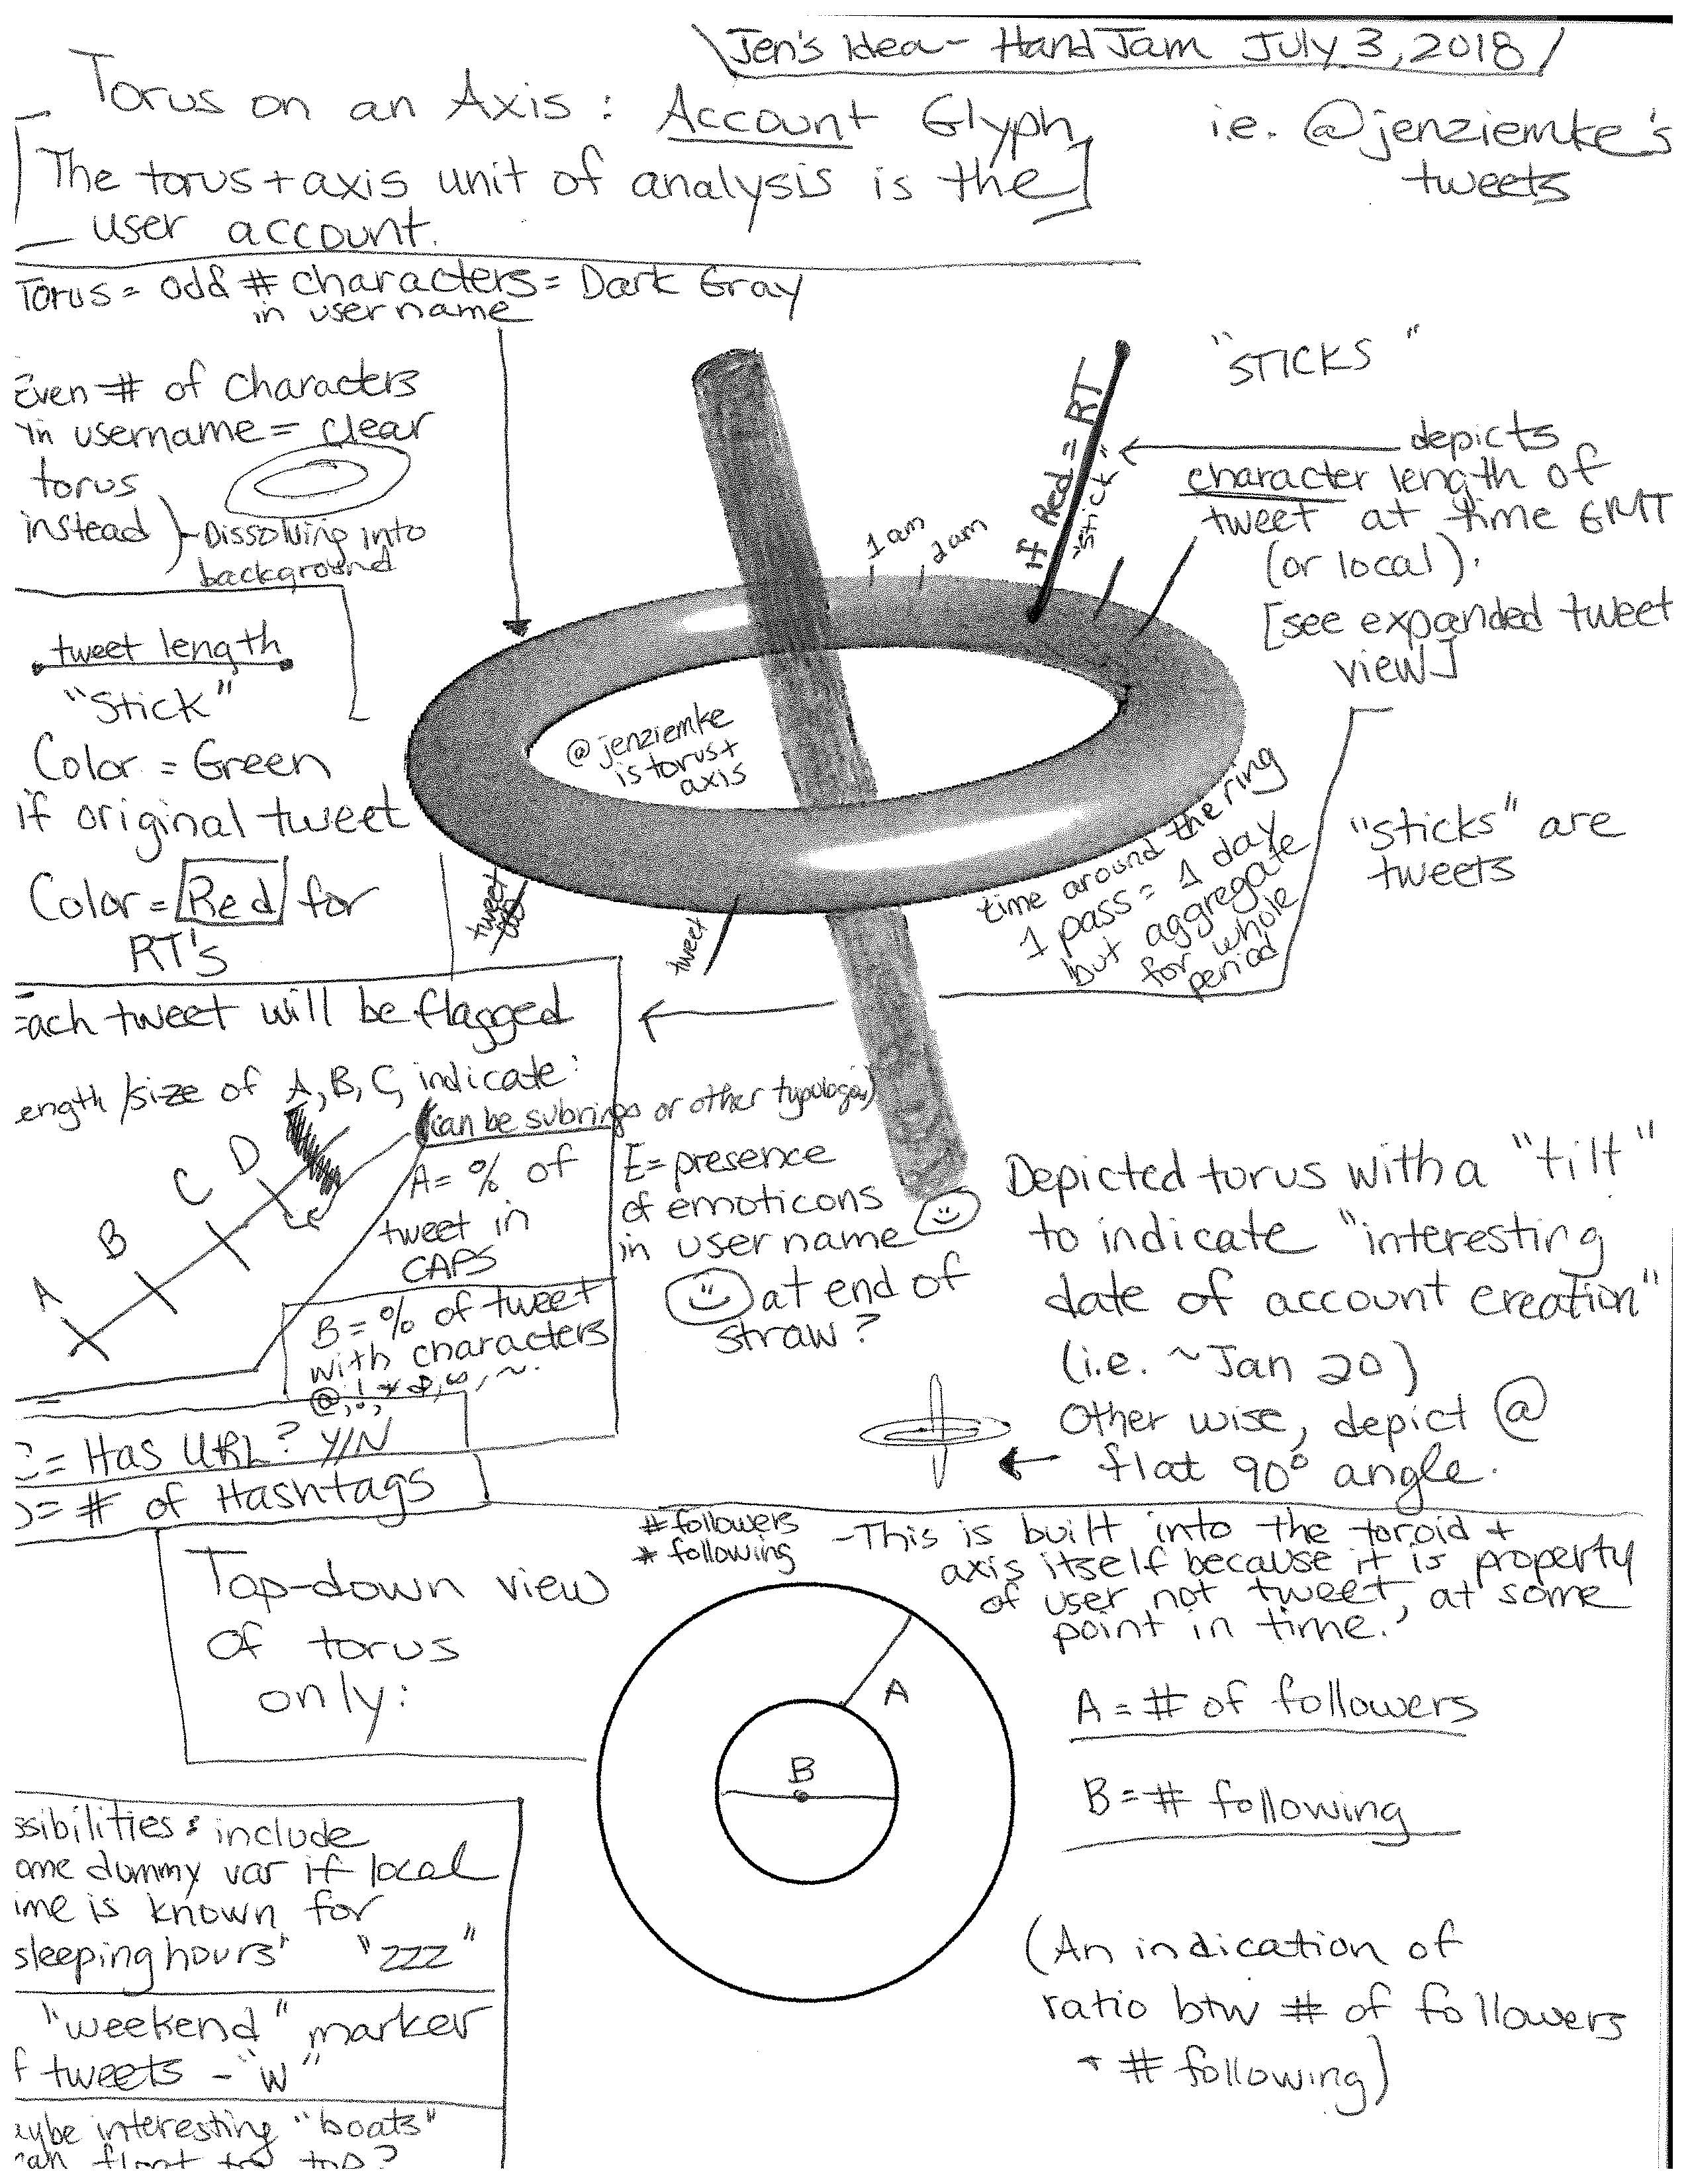 Jen's Idea - Hand Jam July 3, 2018
Torus on an Axis : Account Glyph
i.e. @jenziemke's
tweets
[The torus + axis unit of analysis is the]
user account.
Torus = odd # characters = Dark Gray
in username
Even # of characters
in username = clear
torus
instead
- Dissolving into
background
tweet length
"Stick"
Color = Green
if original tweet
Color = Red for
RT's
"STICKS"
depicts
character length of
tweet at time GMT
(or local).
[see expanded tweet
view]
If Red = RT
"stick"
1am
2am
@jenziemke
is torus +
axis
time around the ring
1 pass = 1 day
but aggregate
for whole
period
"sticks" are
tweets
tweet
tweet
Each tweet will be flagged
ength/size of A, B, C, indicate:
(can be subrings or other typologies)
A
B
C
D
A = % of
tweet in
CAPS
B = % of tweet
with characters
C = Has URL? Y/N
)= # of Hashtags
E = presence
of emoticons
in username
at end of
straw?
Depicted torus with a "tilt"
to indicate "interesting
date of account creation"
(i.e. ~Jan 20)
Other wise, depict @
flat 90° angle.
Top-down view
of torus
only:
# followers
# following
- This is built into the toroid +
axis itself because it is property
of user not tweet, at some
point in time.
A
B
A = # of followers
B = # following
(An indication of
ratio btw # of followers
+ # following)
ssibilities : include
ome dummy var if local
ime is known for
sleeping hours" "zzz"
"weekend" marker
f tweets - "w"
aybe interesting "boats"
can float to top?